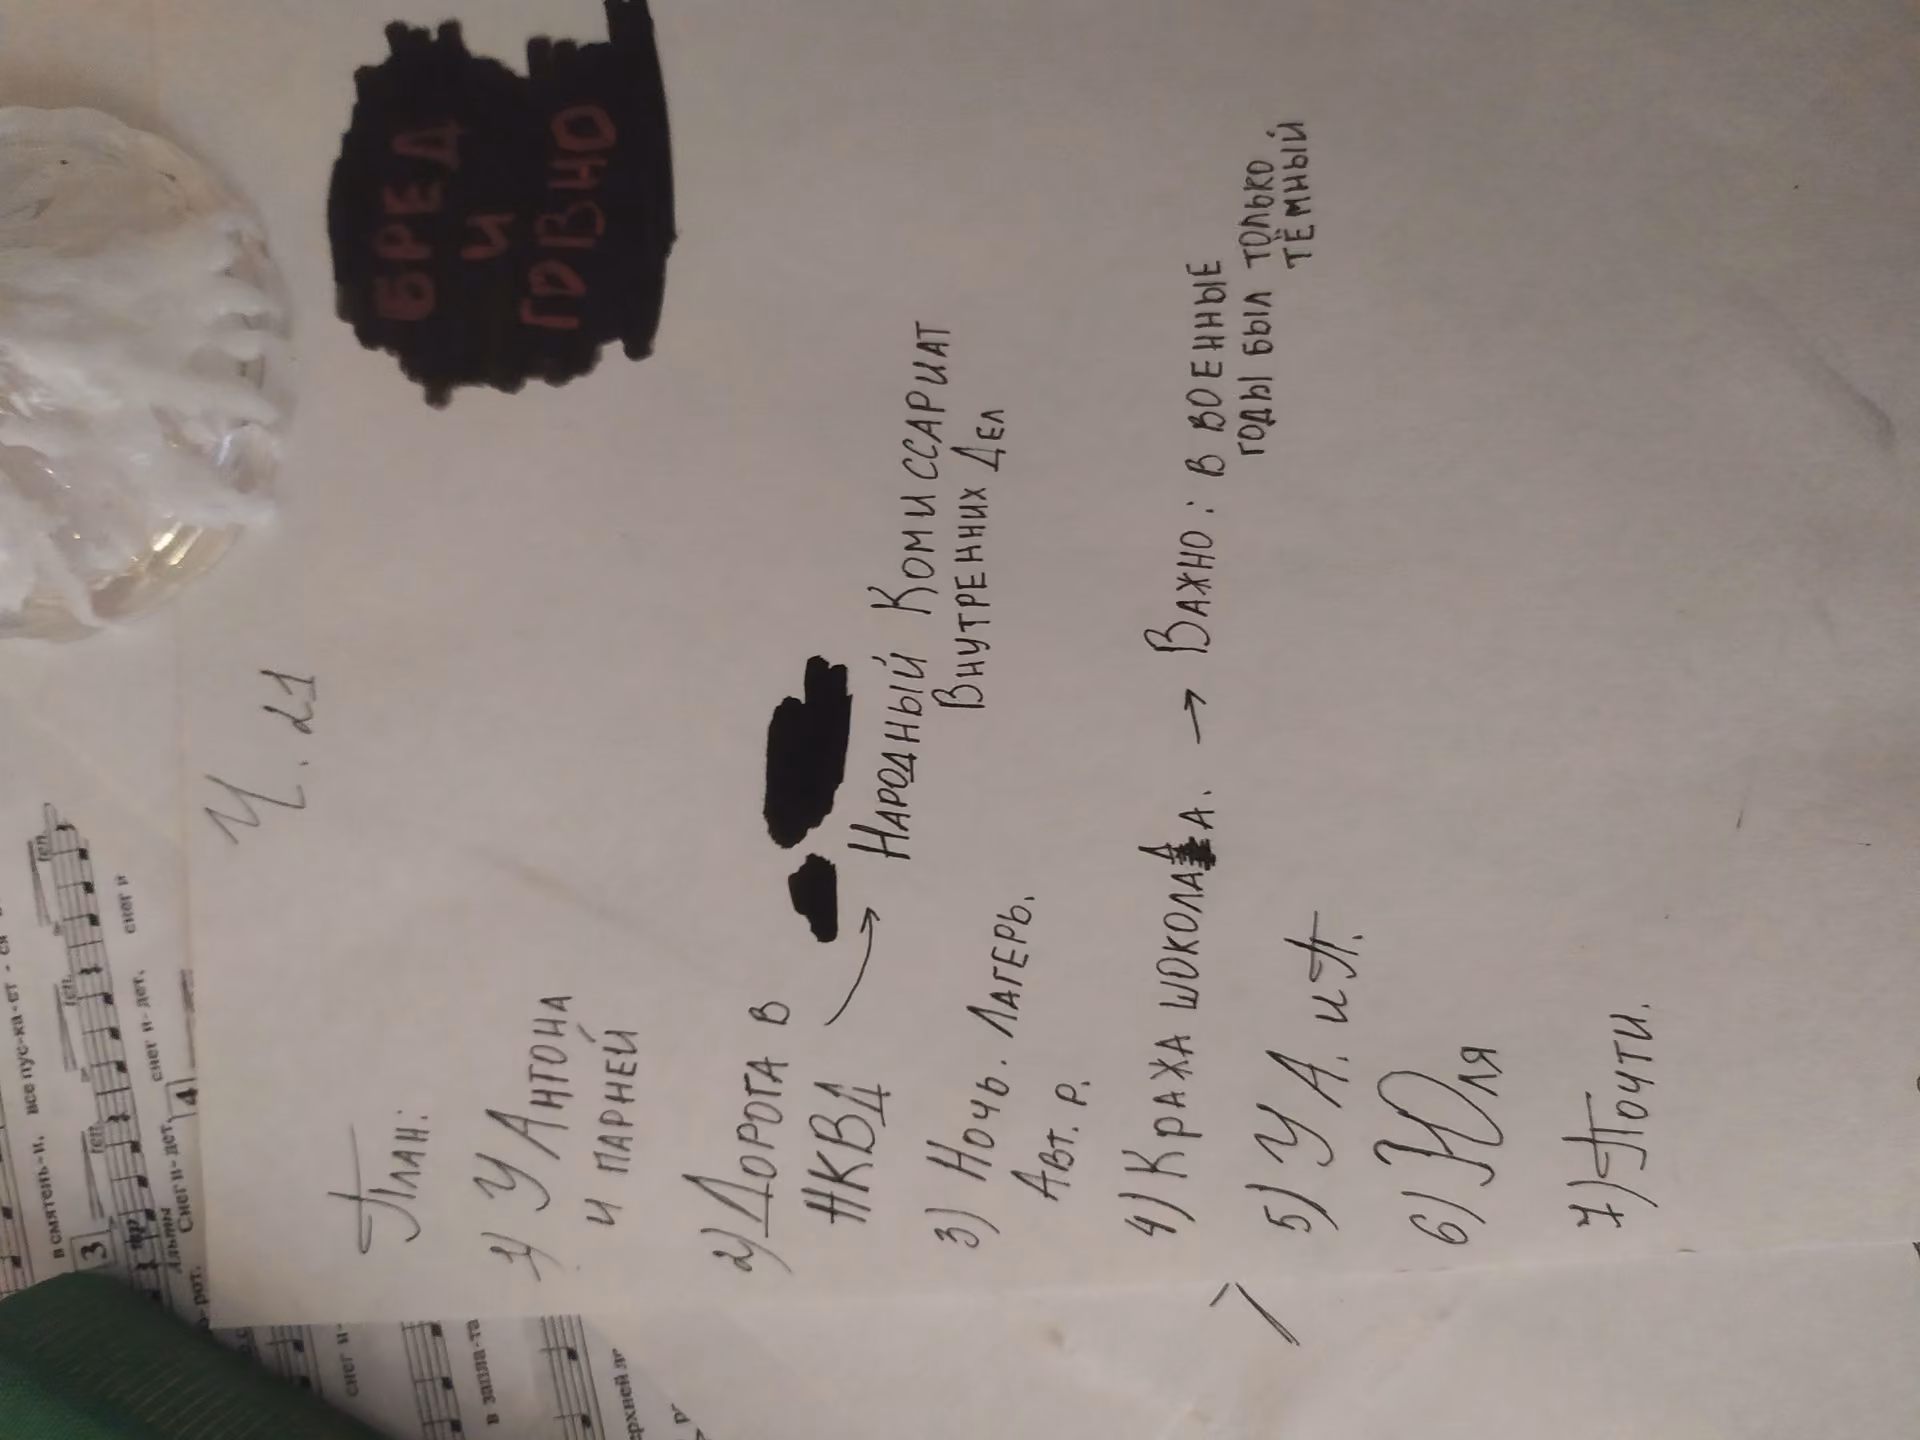 Ч. 21
БРЕД
И
ГОВНО
План:
1) У Антона
и парней
2) Дорога в
НКВД
Народный Комиссариат
Внутренних Дел
3) Ночь. Лагерь.
Авт. р.
4) Кража шоколада. → Важно: в военные
годы был только
тёмный
5) У А. и П.
6) Юля
7) Почти.
все пус-ка-ет - ся
в смятень-и,
3
ten.
ten.
ten.
mp
Альты
Снег и-дет,
снег и-дет,
снег и
4
снег и-
в запла-та